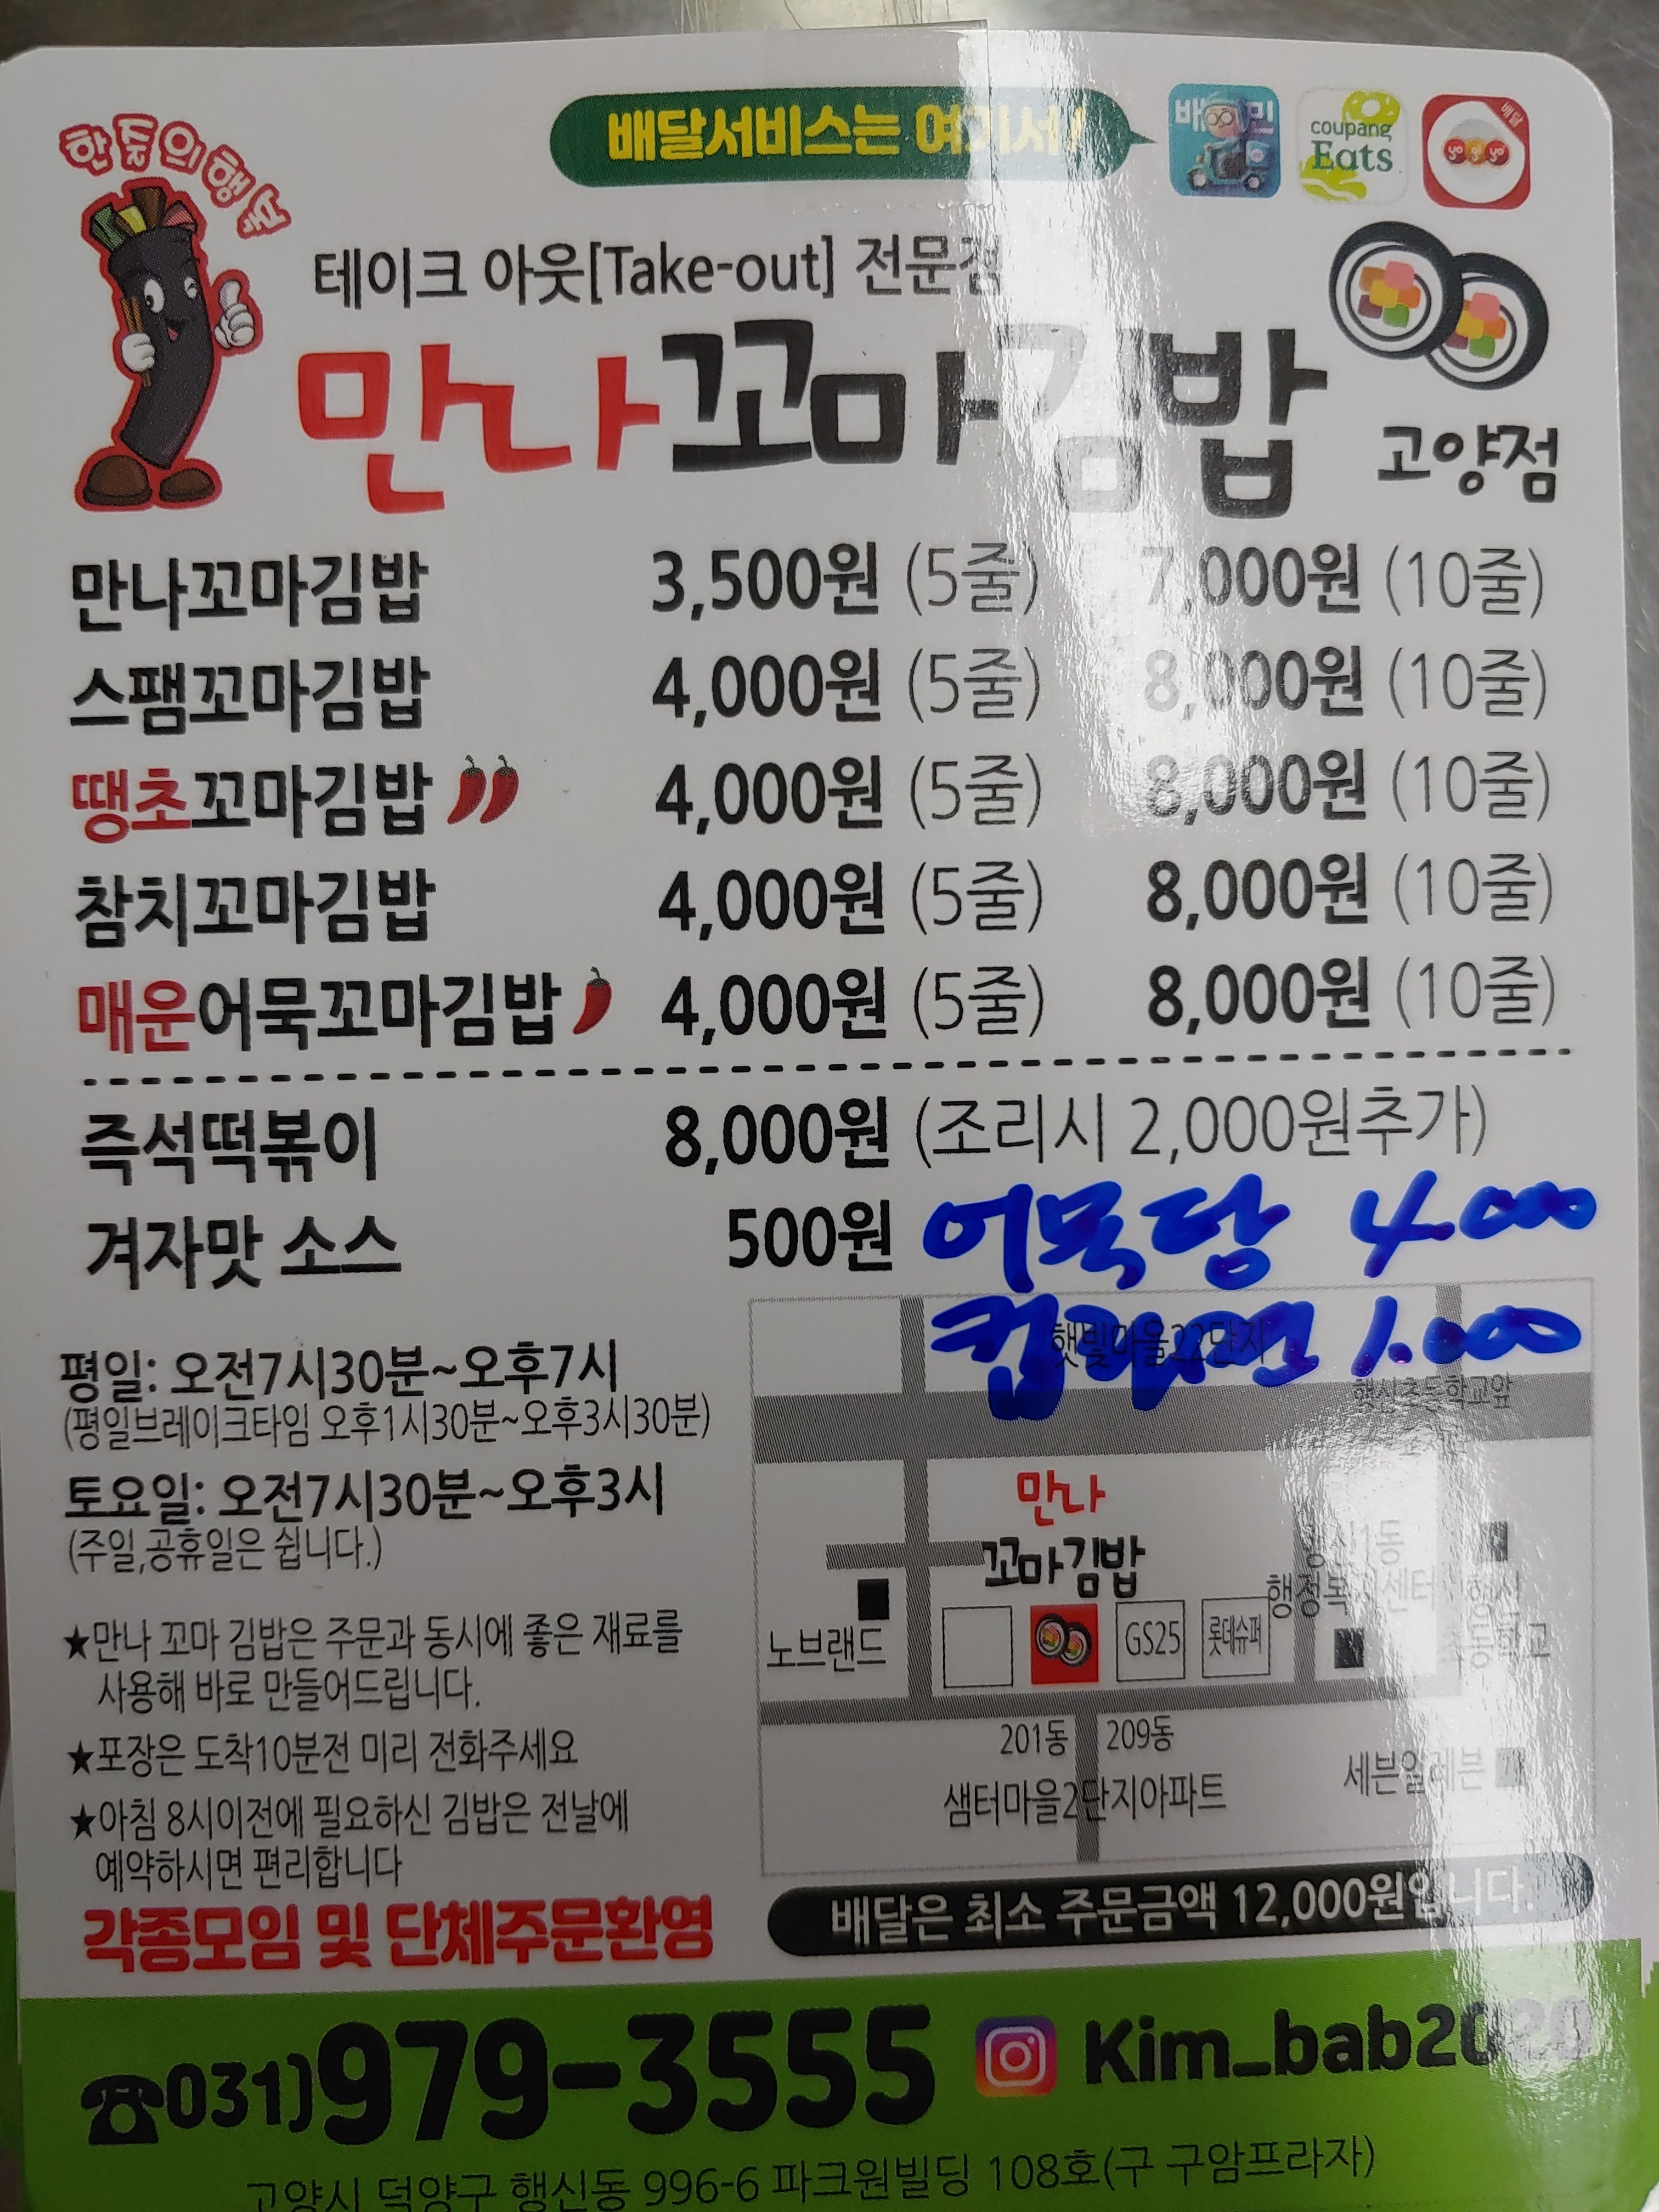 한끼의행복
배달서비스는 여기서!
배민
coupang
Eats
배달
yo gi yo
테이크 아웃[Take-out] 전문점
만나꼬마김밥 고양점
만나꼬마김밥 3,500원 (5줄) 7,000원 (10줄)
스팸꼬마김밥 4,000원 (5줄) 8,000원 (10줄)
땡초꼬마김밥 4,000원 (5줄) 8,000원 (10줄)
참치꼬마김밥 4,000원 (5줄) 8,000원 (10줄)
매운어묵꼬마김밥 4,000원 (5줄) 8,000원 (10줄)
즉석떡볶이 8,000원 (조리시 2,000원추가)
겨자맛 소스 500원 어묵탕 4.000
컵라면 1.000
평일: 오전7시30분~오후7시
(평일브레이크타임 오후1시30분~오후3시30분)
토요일: 오전7시30분~오후3시
(주일,공휴일은 쉽니다.)
★만나 꼬마 김밥은 주문과 동시에 좋은 재료를
사용해 바로 만들어드립니다.
★포장은 도착10분전 미리 전화주세요
★아침 8시이전에 필요하신 김밥은 전날에
예약하시면 편리합니다
각종모임 및 단체주문환영
햇빛마을22단지
행신초등학교앞
만나
꼬마김밥
행신1동
행정복지센터
행신
초등학교
노브랜드
GS25
롯데슈퍼
201동 209동
샘터마을2단지아파트
세븐일레븐
배달은 최소 주문금액 12,000원입니다.
☎031)979-3555 Kim_bab2020
고양시 덕양구 행신동 996-6 파크원빌딩 108호(구 구암프라자)